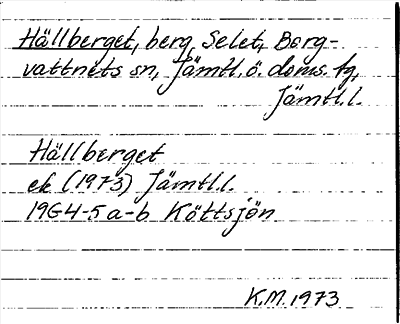 Hällberget, berg, Selet, Borg-
vattnets sn, Jämtl. ö. doms. tg,
Jämtl. l.
Hällberget
ek (1973) Jämtl. l.
19G4-5 a-b Köttsjön
K.M. 1973